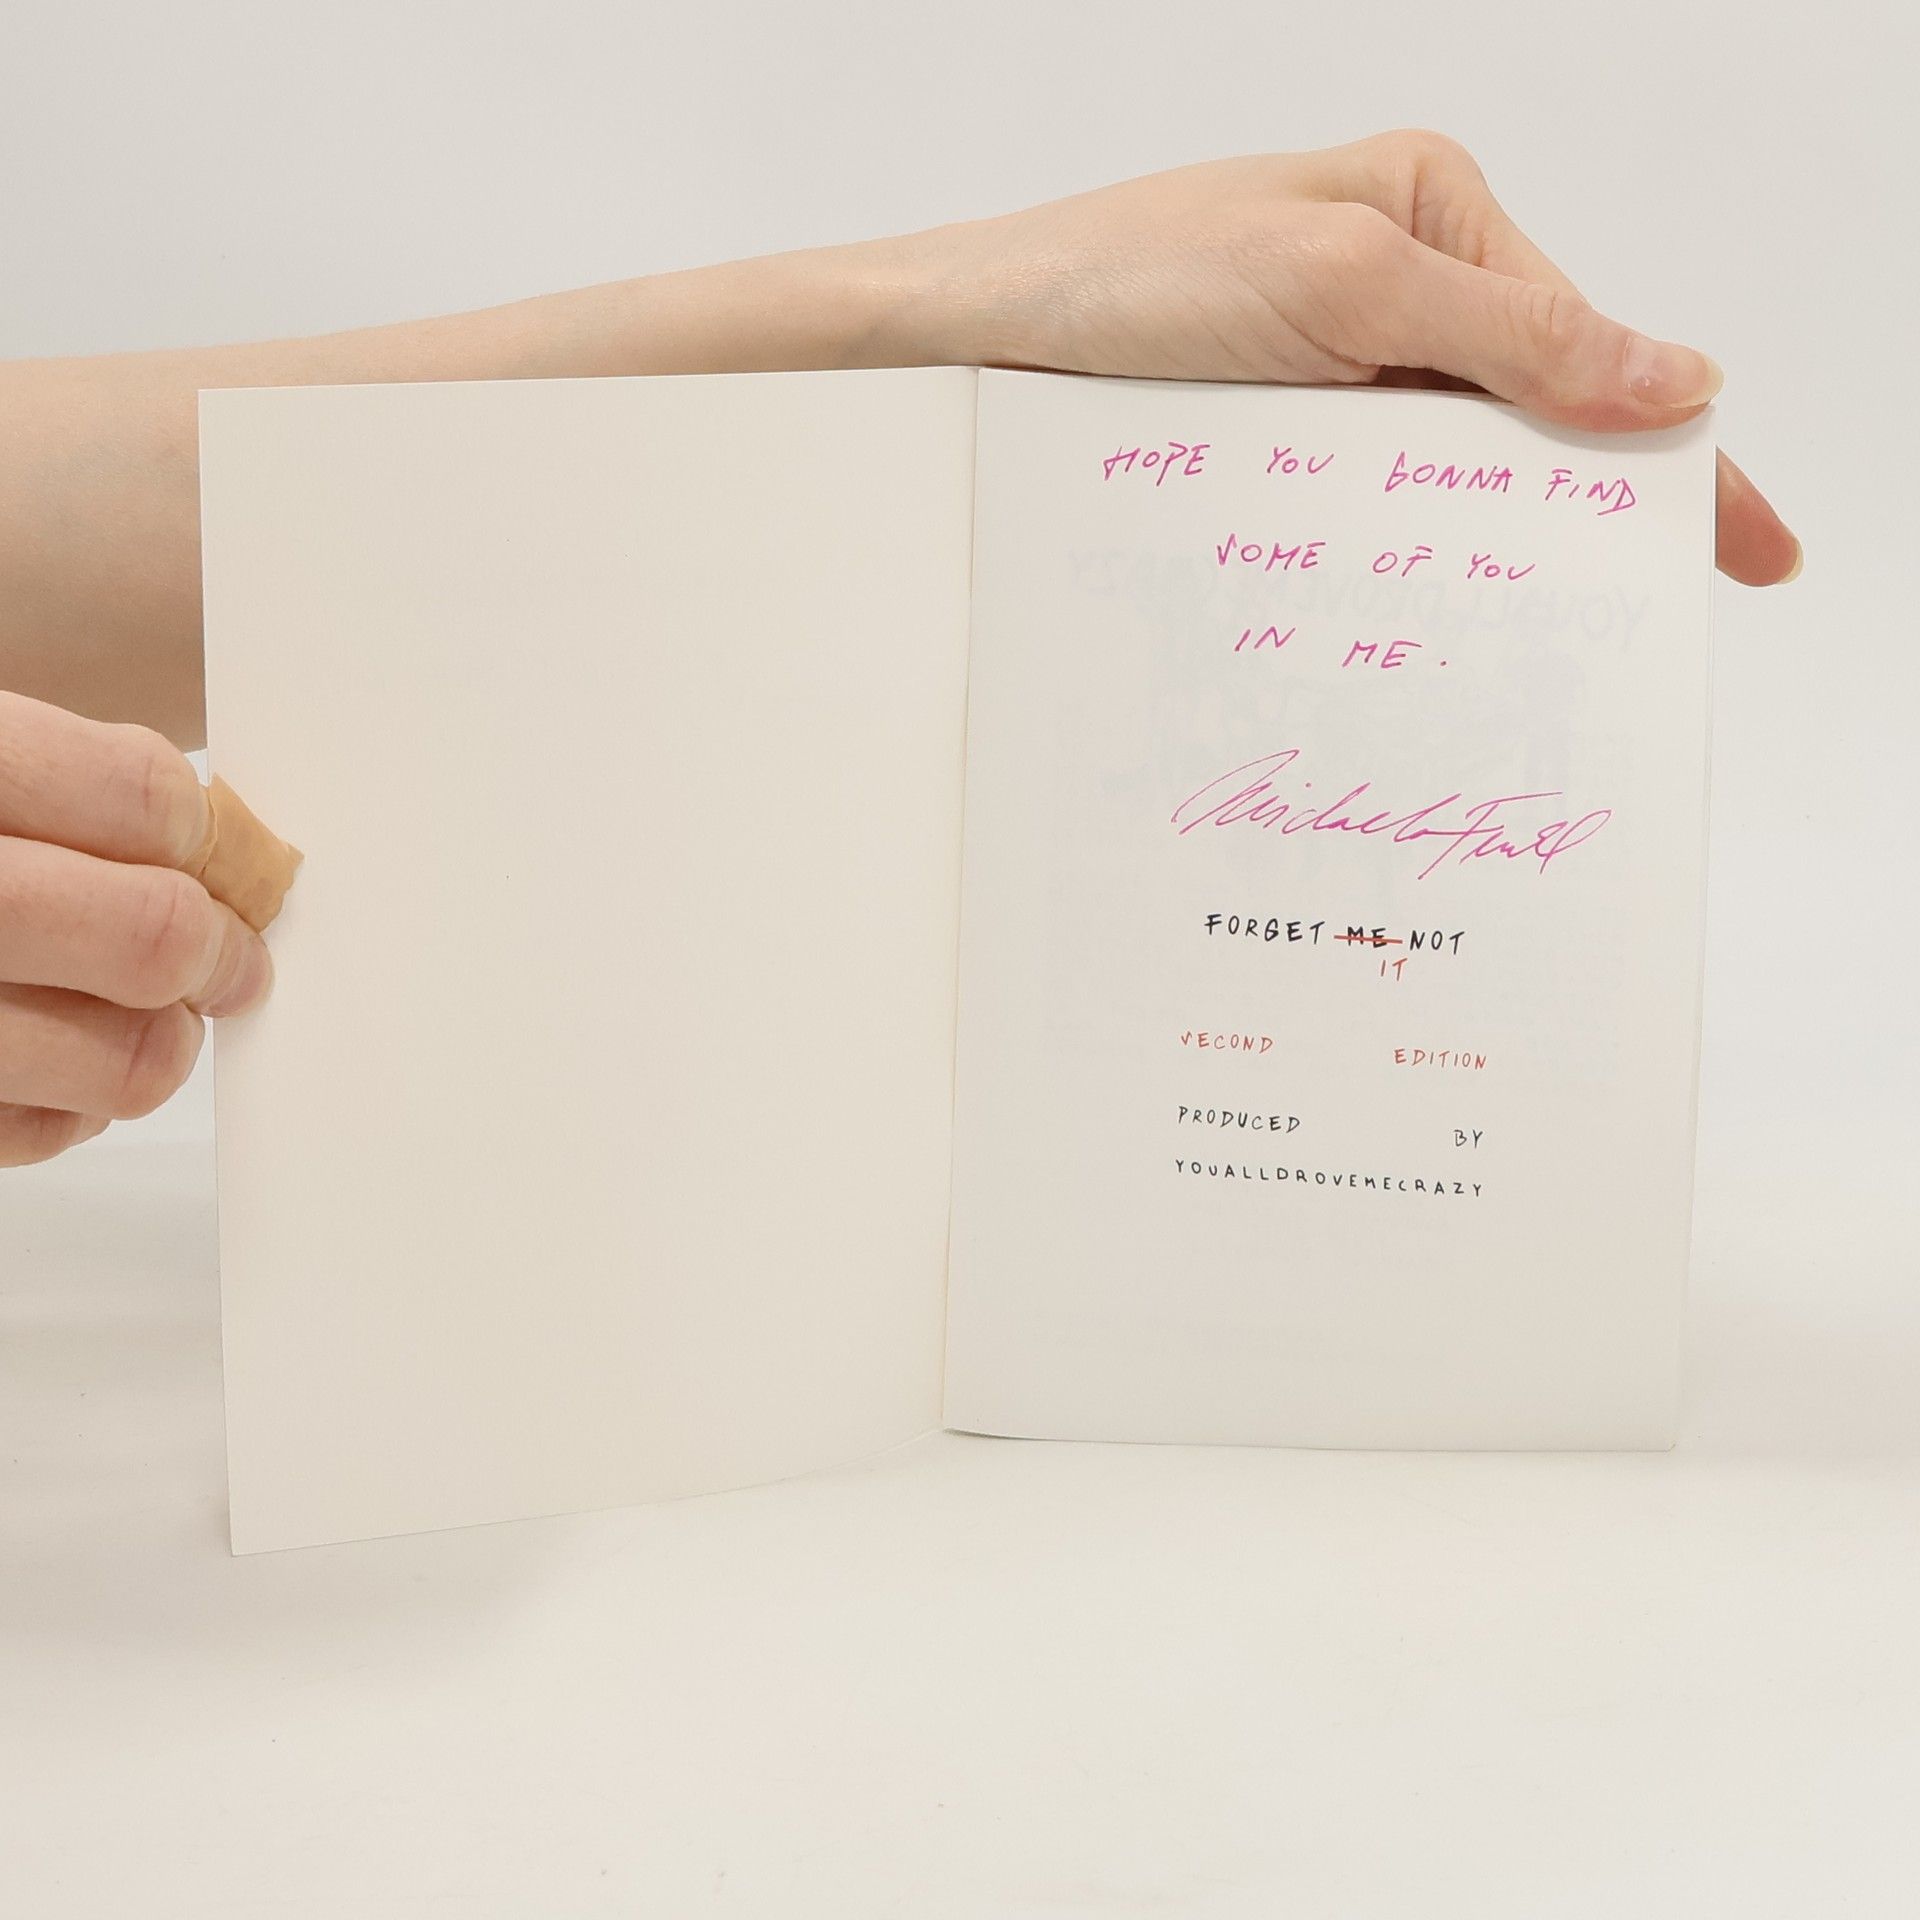 HOPE YOU GONNA FIND
SOME OF YOU
IN ME.
FORGET ME NOT
IT
SECOND EDITION
PRODUCED BY
YOUALLDROVEMECRAZY